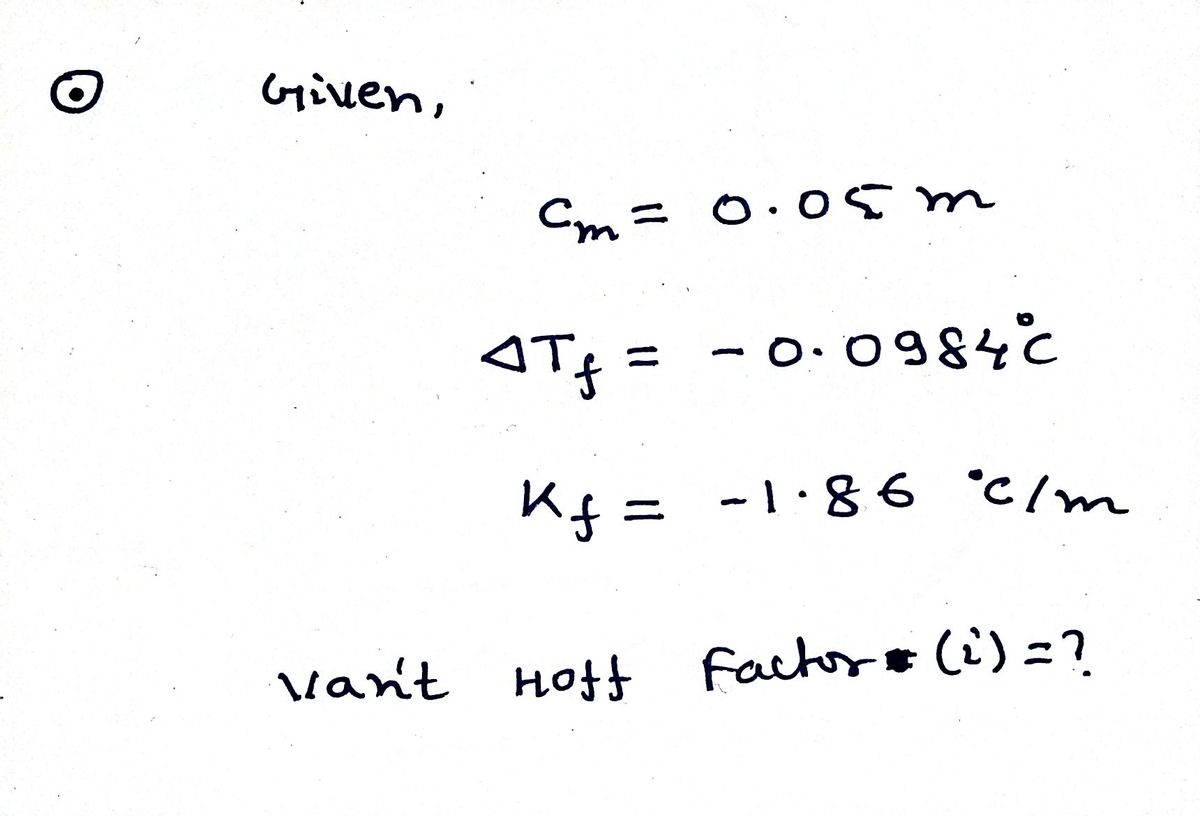 Given,
Cm = 0.05 m
ΔTf = -0.0984°C
Kf = -1.86 °C/m
Van't Hoff Factor (i) = ?